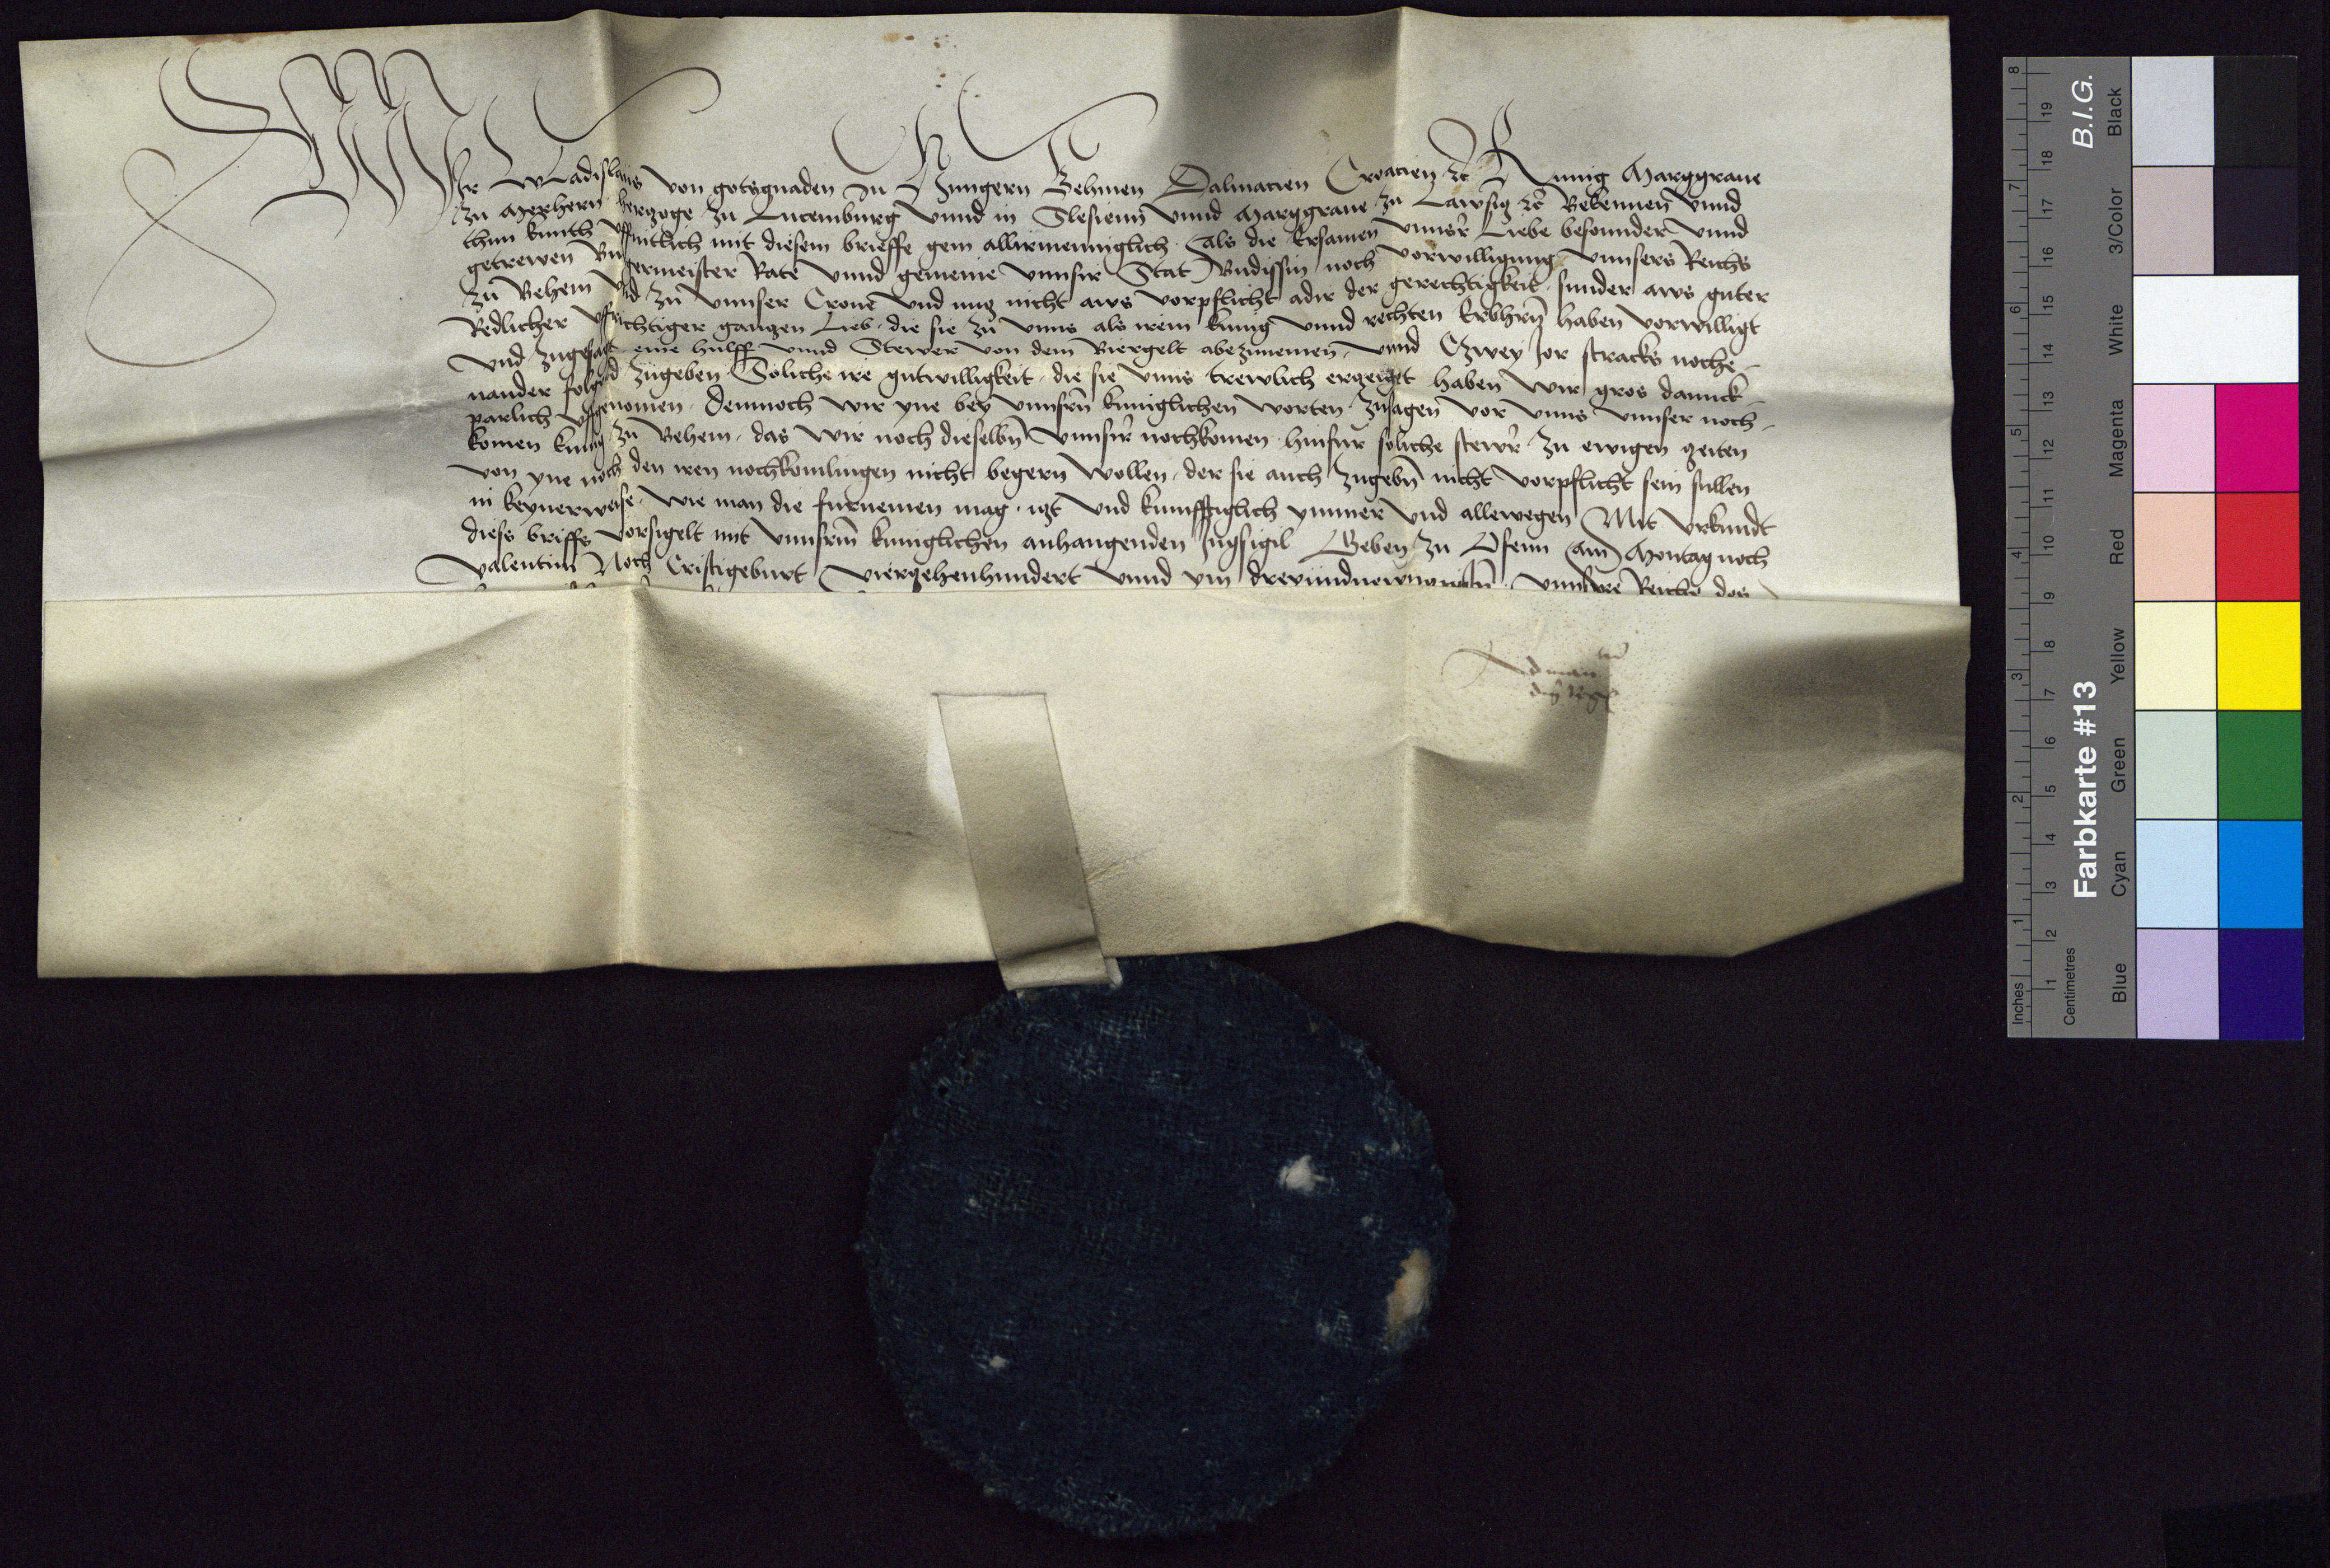 Wir Wladislaus von gotsgnaden zu Hungern Behmen Dalmacien Croacien ꝛc Kunig Marggraue
zu Merhern hertzoge zu Lucemburg vnnd in Slesienn vnnd Marggraue zu Lawsitz ꝛc Bekennen vnnd
thun kunth uffintlich mit diesem brieffe gem allirmenniglich Als die Ersamen vnnsr̄ Liebe besounder vnnd
getrewen Burgermeister Rate vnnd gemeine vnnsir Stat Budissin noch vorwilligung vnnsers Reichs
zu Behem vnd zu vnnser Crone vnd nuz nicht aws vorpflicht adir der gerechtigkeit sunder aws guter
Redlicher uffrichtiger ganzen Lieb die sie zu vnns als irem kunig vnnd rechten Erbhrn̄ haben vorwilligt
vnd zugesagt eine hulff vnnd Stewer von dem Biergelt abezunemen vnnd Czwey Jor stracks noche-
nander folgend zugeben Soliche ire gutwilligkeit die sie vnns trewlich erzeiget haben wir gros dannck-
parlich uffgenomen Demnoch wir yne bey vnnsrn̄ kuniglichen worten zusagen vor vnns vnnser noch-
komen kunig zu Behem das wir noch dieselbn̄ vnnsir̄ nochkomen hinfur soliche stewr̄ zu ewigen zeiten
von yne noch den iren nochkomlingen nicht begern wollen der sie auch zugebn̄ nicht vorpflicht sein sullen
in keynerweise wie man die furnemen mag izt vnd kunfftiglich ymmer vnd allewegen Mit vrkundt
diess briffs vorsigelt mit vnnsrm̄ kuniglichen anhangenden Jngsigil Geben zu Ofenn Am Montag noch
Valentini Noch Cristigeburt vierzehenhundert vnnd ym dreyundnewnzigistn̄ vnnsere Reiche des
Ad man
8
7
6
5
4
3
2
1
Inches
19
18
17
16
15
14
13
12
11
10
9
8
7
6
5
4
3
2
1
Centimetres
B.I.G.
Farbkarte #13
Black
3/Color
White
Magenta
Red
Yellow
Green
Cyan
Blue